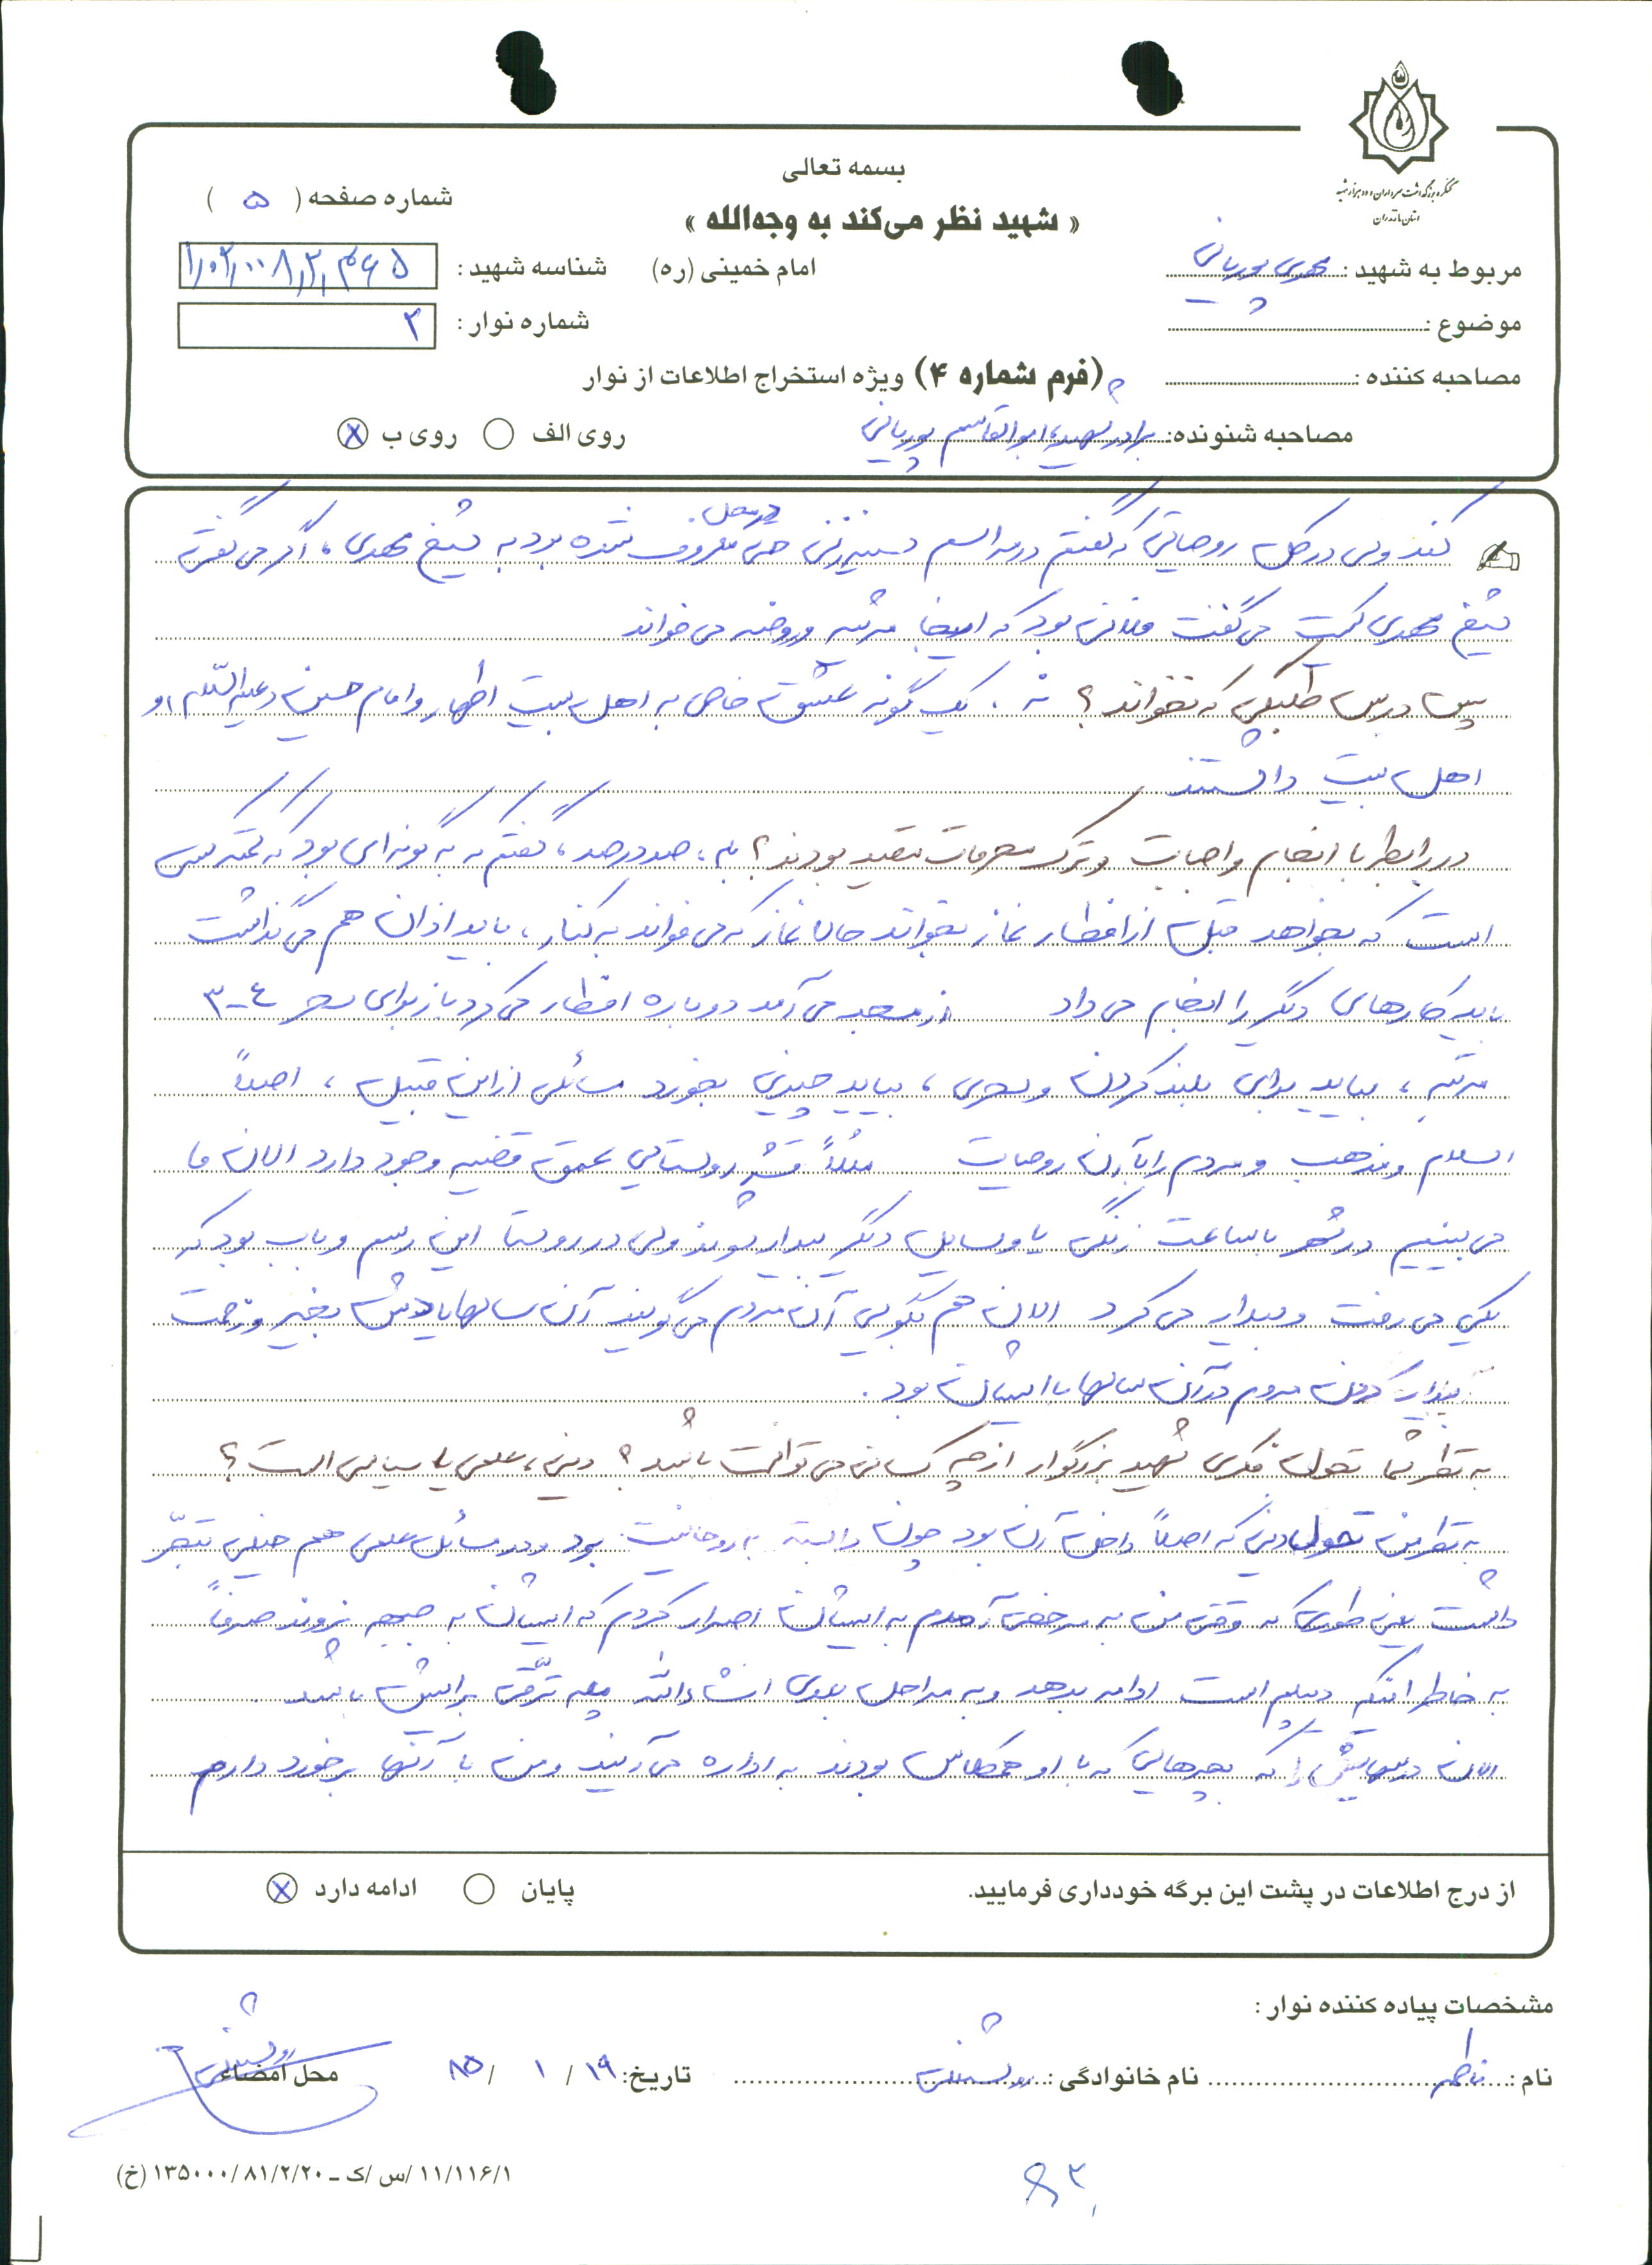 کنگره بزرگداشت سرداران و ده هزار شهید
استان مازندران
بسمه تعالی
« شهید نظر می‌کند به وجه‌الله »
امام خمینی (ره)
شماره صفحه ( ۵ )
مربوط به شهید : مهدی پوریانی
شناسه شهید :
موضوع :
شماره نوار : ۲
مصاحبه کننده :
(فرم شماره ۴) ویژه استخراج اطلاعات از نوار
مصاحبه شنونده: برادر شهید، ابوالقاسم پوریانی
روی الف روی ب
کند ولی در کل روحیاتی که گفتم در مراسم سینه‌زنی حتی در محل معروف شده بود به شیخ مهدی، اگر می گفتی
شیخ مهدی کیست می گفت فلانی بود که اینجا مرثیه و روضه می خواند
پس درس طلبگی که نخواند؟ نه، یک گونه عشق خاصی به اهل بیت اطهار و امام حسین (علیه السلام) و
اهل بیت داشتند
در رابطه با انجام واجبات و ترک محرمات مقید بودند؟ بله، صددرصد، گفتم که به گونه‌ای بود که کمتر کسی
است که بخواهد قبل از افطار نماز بخواند حالا نماز که می خواند به کنار، باید اذان هم می گذاشت
باید کارهای دیگر را انجام می داد از مسجد می آمد دوباره افطار می کرد باز برای سحر ۴-۳
مرتبه، بیاید برای بلند کردن و سحری، بیاید چیزی بخورد مسائلی از این قبیل، اصلاً
اسلام و مذهب و مردم را با آن روحیات مثلاً قشر روستایی عمق قضیه وجود دارد الان ما
می بینیم در شهر با ساعت زنگی یا وسایل دیگر بیدار شوند ولی در روستا این رسم و باب بود که
یکی می رفت و بیدار می کرد الان هم بگویی آن مردم می گویند آن سالها یادش بخیر و زحمت
بیدار کردن مردم در آن سالها با ایشان بود.
به نظر شما تحول فکری شهید بزرگوار از چه کسانی می توانست باشد؟ دینی، علمی یا سیاسی است؟
به نظر من تحول دینی که اصلاً داخل آن بود چون وابسته به روحانیت بود و در مسائل علمی هم خیلی تبحّر
داشت یعنی طوری که وقتی من به مرخصی آمدم به ایشان اصرار کردم که ایشان به جبهه نروند صرفاً
به خاطر اینکه دیپلم است ادامه بدهد و به مراحل بعدی انشاءالله ترقی برایش باشد
الان درسهایش را که بچه‌هایی که با او همکلاس بودند به اداره می آیند و من با آنها برخورد دارم
از درج اطلاعات در پشت این برگه خودداری فرمایید.
پایان ادامه دارد
مشخصات پیاده کننده نوار :
نام : فاطمه نام خانوادگی : تاریخ: ۱۹ / ۱ / ۸۵ محل امضاء
۱۱/۱۱۶/۱ /س /ک ـ ۱۳۵۰۰۰/۸۱/۲/۲۰ (خ)